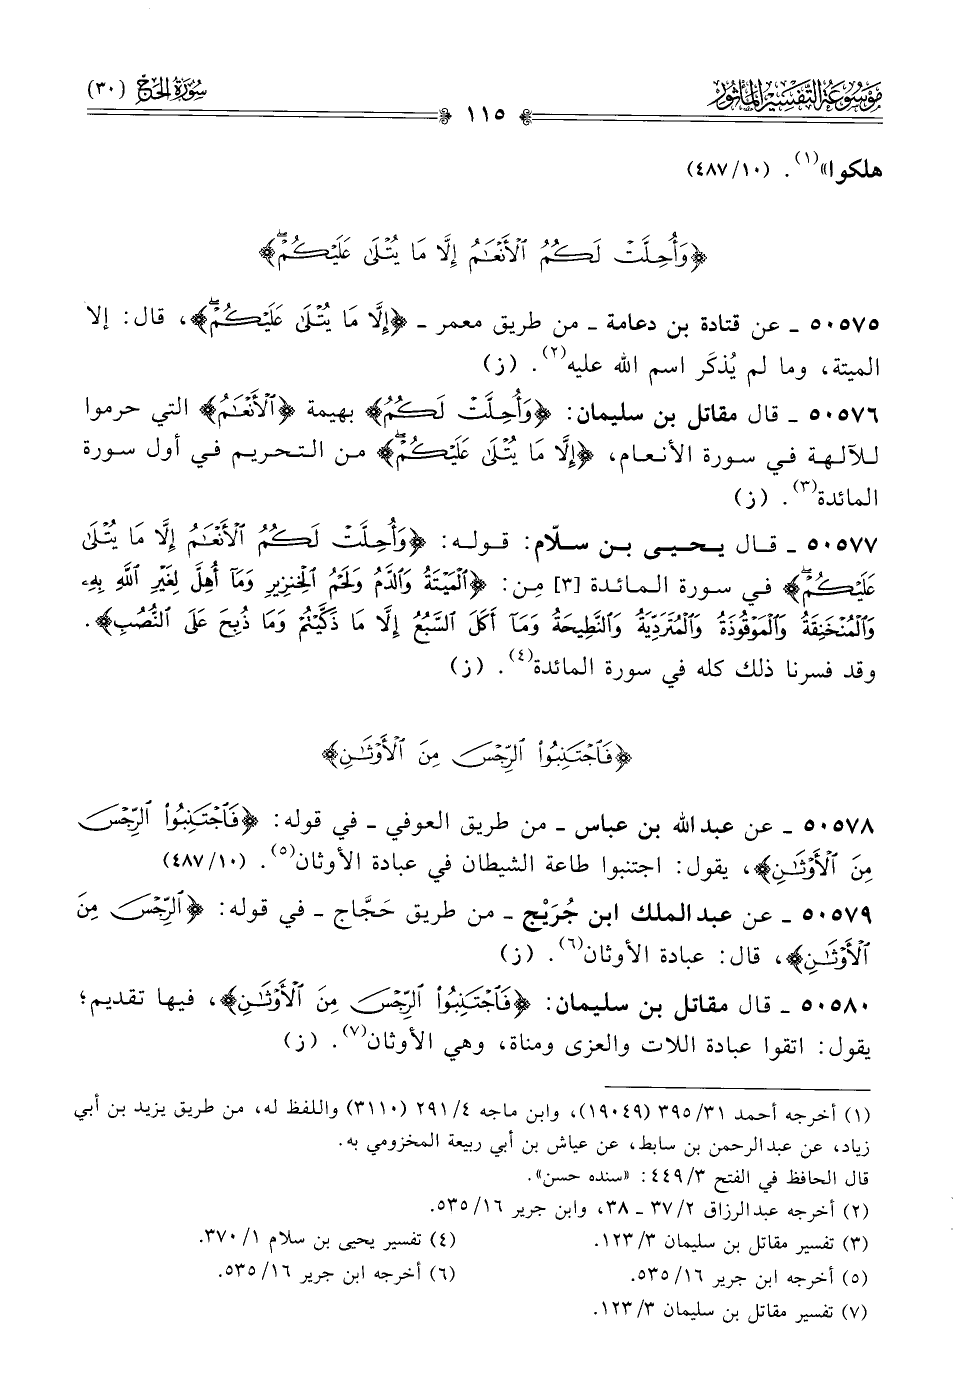 مَوْسُوعَة التَّفْسِيرِ المَأْثُور
سُورَةُ الحَجِّ (٣٠)
١١٥
هلكوا»(١). (٤٨٧/١٠)
﴿وَأُحِلَّتْ لَكُمُ ٱلْأَنْعَٰمُ إِلَّا مَا يُتْلَىٰ عَلَيْكُمْۖ﴾
٥٠٥٧٥ ـ عن قتادة بن دعامة ـ من طريق معمر ـ ﴿إِلَّا مَا يُتْلَىٰ عَلَيْكُمْۖ﴾، قال: إلا
الميتة، وما لم يُذكَر اسم الله عليه(٢). (ز)
٥٠٥٧٦ ـ قال مقاتل بن سليمان: ﴿وَأُحِلَّتْ لَكُمُ﴾ بهيمة ﴿ٱلْأَنْعَٰمُ﴾ التي حرموا
للآلهة في سورة الأنعام، ﴿إِلَّا مَا يُتْلَىٰ عَلَيْكُمْۖ﴾ من التحريم في أول سورة
المائدة(٣). (ز)
٥٠٥٧٧ ـ قال يحيى بن سلّام: قوله: ﴿وَأُحِلَّتْ لَكُمُ ٱلْأَنْعَٰمُ إِلَّا مَا يُتْلَىٰ
عَلَيْكُمْۖ﴾ في سورة المائدة [٣] مِن: ﴿ٱلْمَيْتَةُ وَٱلدَّمُ وَلَحْمُ ٱلْخِنزِيرِ وَمَآ أُهِلَّ لِغَيْرِ ٱللَّهِ بِهِۦ
وَٱلْمُنْخَنِقَةُ وَٱلْمَوْقُوذَةُ وَٱلْمُتَرَدِّيَةُ وَٱلنَّطِيحَةُ وَمَآ أَكَلَ ٱلسَّبُعُ إِلَّا مَا ذَكَّيْتُمْ وَمَا ذُبِحَ عَلَى ٱلنُّصُبِ﴾.
وقد فسرنا ذلك كله في سورة المائدة(٤). (ز)
﴿فَٱجْتَنِبُوا۟ ٱلرِّجْسَ مِنَ ٱلْأَوْثَٰنِ﴾
٥٠٥٧٨ ـ عن عبد الله بن عباس ـ من طريق العوفي ـ في قوله: ﴿فَٱجْتَنِبُوا۟ ٱلرِّجْسَ
مِنَ ٱلْأَوْثَٰنِ﴾، يقول: اجتنبوا طاعة الشيطان في عبادة الأوثان(٥). (٤٨٧/١٠)
٥٠٥٧٩ ـ عن عبد الملك ابن جُرَيْج ـ من طريق حَجَّاج ـ في قوله: ﴿ٱلرِّجْسَ مِنَ
ٱلْأَوْثَٰنِ﴾، قال: عبادة الأوثان(٦). (ز)
٥٠٥٨٠ ـ قال مقاتل بن سليمان: ﴿فَٱجْتَنِبُوا۟ ٱلرِّجْسَ مِنَ ٱلْأَوْثَٰنِ﴾، فيها تقديم؛
يقول: اتقوا عبادة اللات والعزى ومناة، وهي الأوثان(٧). (ز)
(١) أخرجه أحمد ٣٩٥/٣١ (١٩٠٤٩)، وابن ماجه ٢٩١/٤ (٣١١٠) واللفظ له، من طريق يزيد بن أبي
زياد، عن عبدالرحمن بن سابط، عن عياش بن أبي ربيعة المخزومي به.
قال الحافظ في الفتح ٤٤٩/٣: «سنده حسن».
(٢) أخرجه عبدالرزاق ٣٧/٢ ـ ٣٨، وابن جرير ٥٣٥/١٦.
(٣) تفسير مقاتل بن سليمان ١٢٣/٣.
(٤) تفسير يحيى بن سلام ٣٧٠/١.
(٥) أخرجه ابن جرير ٥٣٥/١٦.
(٦) أخرجه ابن جرير ٥٣٥/١٦.
(٧) تفسير مقاتل بن سليمان ١٢٣/٣.